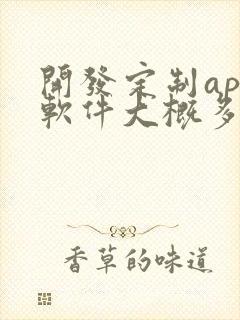 開發定制ap
軟件大概多
香草的味道